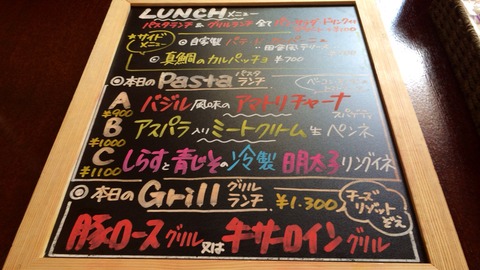 LUNCHメニュー
パスタランチ&グリルランチ 全て
サイドメニュー
◎自家製
田舎風
◎真鯛のカルパッチョ ¥700
◎本日のPastaパスタランチ
A バジル風味のアマトリチャーナ
¥900 スパゲティ
B アスパラ入りミートクリーム 生ペンネ
¥1000
C しらすと青じその冷製 明太子リングイネ
¥1100
◎本日のGrillグリルランチ ¥1.300
チーズリゾットぞえ
豚ロースグリル又は牛サーロイングリル